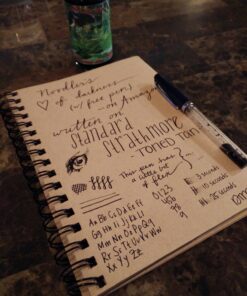 Noodler's
♡ of darkness
(w/ free pen)
- on Amazon
written on
standard
strathmore
- TONED TAN
This pen has
a little bit
of flex
0123
456
78
9
B: 3 seconds
10 seconds
25 seconds
Aa Bb Cc Dd Ee Ff
Gg Hh Ii Jj Kk Ll
Mm Nn Oo Pp Qq
Rr Ss Tt Uu Vv Ww
Xx Yy Zz